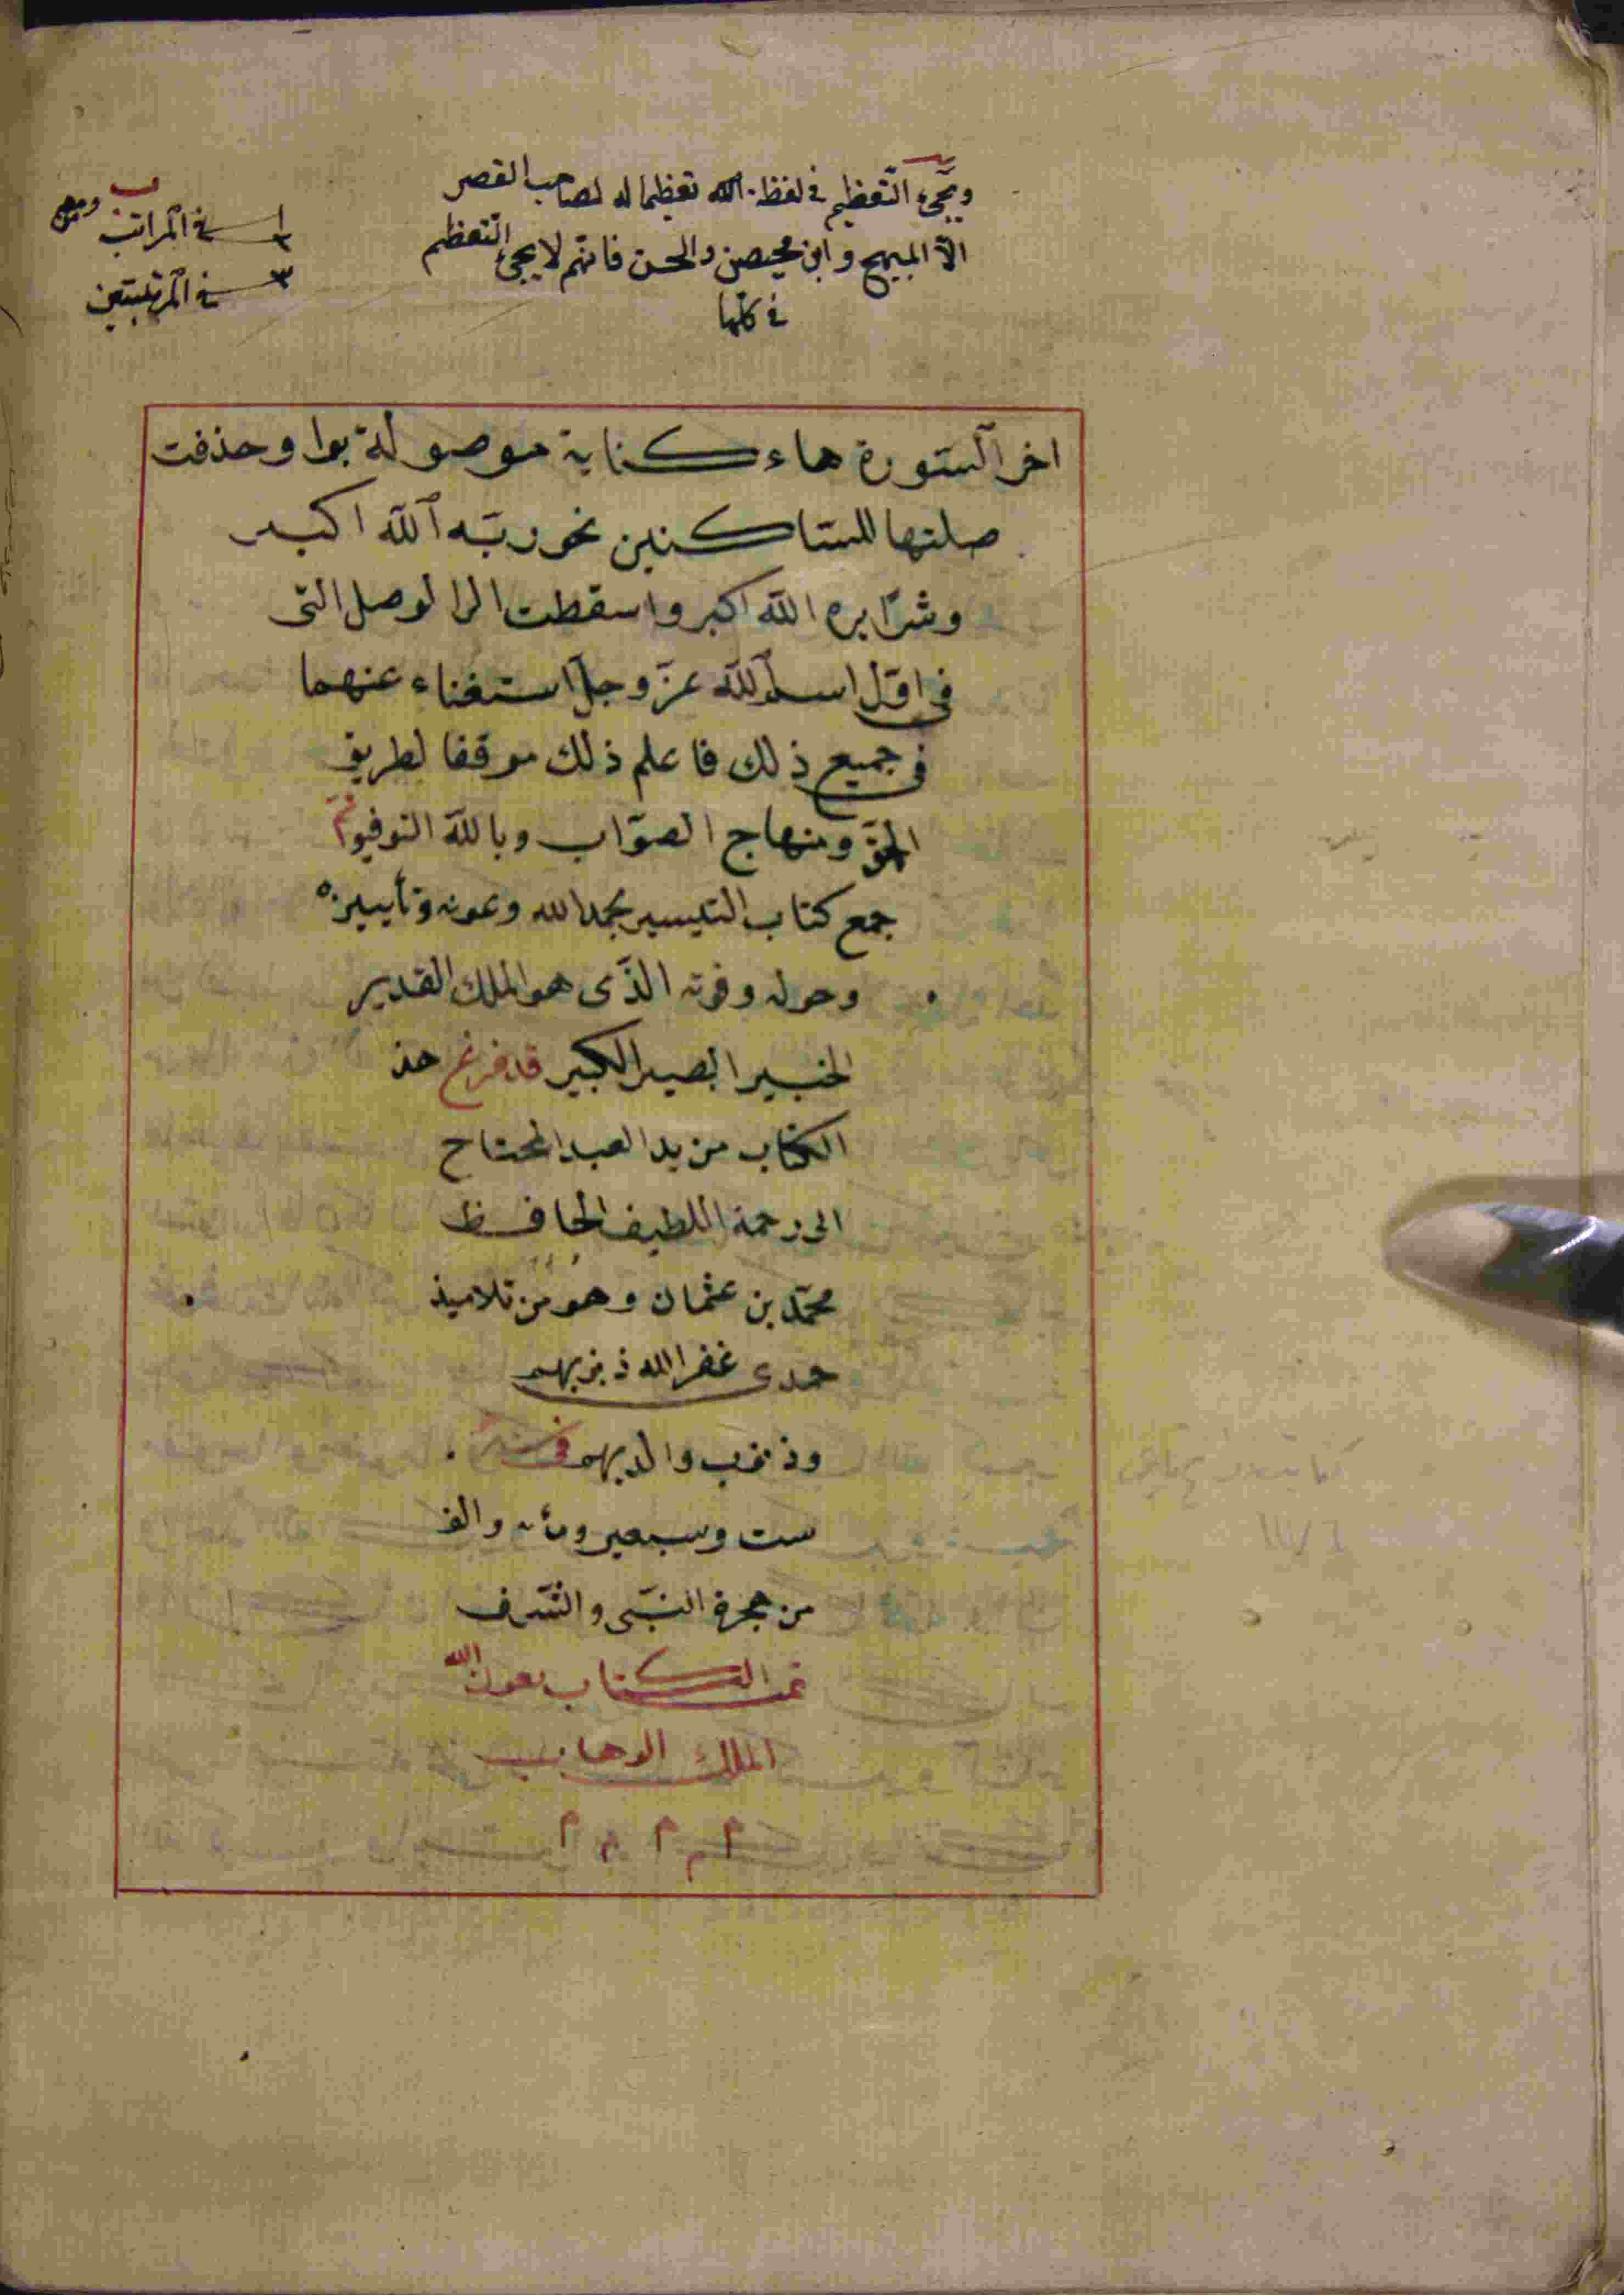 ويجىء التعظيم فى لفظة الله تعظيما له لصاحب القصر
الّا المبهج وابن محيصن والحسن فانهم لا يجئ التعظيم
فى كلها
فى المراتب
فى المرتبتين
اخر السّورة هاء كناية موصولة بواو حذفت
صلتها للسّاكنين نحو ربّه الله اكبر
وشرّا يره الله اكبر واسقطت الوصل التى
فى اوّل اسم الله عزّ وجلّ استغناء عنهما
فى جميع ذلك فاعلم ذلك موفقا لطريق
الحقّ ومنهاج الصوّاب وبالله التوفيق تم
جمع كتاب التيسير بحمد الله وعونه وتأييده
وحوله وقوته الذّى هو الملك القدير
الخبير البصير الكبير قد فرغ هذ
الكتاب من يد العبد المحتاج
الى رحمة اللطيف الحافظ
محمّد بن عثمان وهو من تلاميذ
غفر الله ذنوبهم
وذنوب والديهم فى سنة
ست وسبعين ومأه والف
من هجرة النبّى والشّرف
تمت الكتاب بعون الله
الملك الوهاب
م م م م م